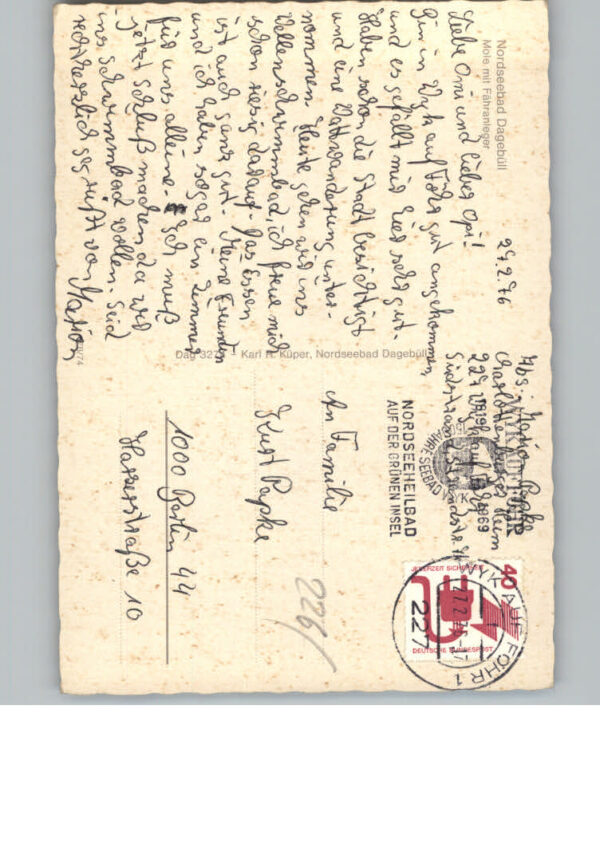 Nordseebad Dagebüll
Mole mit Fähranleger
29.2.76
Liebe Omi und lieber Opi!
Bin in Wyk auf Föhr gut angekommen,
und es gefällt mir hier sehr gut.
Haben schon die Stadt besichtigt
und eine Wattwanderung unter-
nommen. Heute gehen wir ins
Wellenschwimmbad, ich freue mich
schon riesig darauf. Das Essen
ist auch ganz gut. Meine Freundin
und ich haben sogar ein Zimmer
für uns alleine. Ich muß
jetzt schluß machen da wir
ins schwimmbad wollen. Seid
recht herzlich gegrüßt von
Marion
Karl R. Küper, Nordseebad Dagebüll
Abs.: Marion Papke
Charlottenburger Heim
227 Wyk auf Föhr
NORDSEEHEILBAD
AUF DER GRÜNEN INSEL
40
JEDERZEIT SICHERHEIT
DEUTSCHE BUNDESPOST
WYK AUF FÖHR 1
227
An Familie
Kurt Papke
1000 Berlin 44
Harzerstraße 10
226/